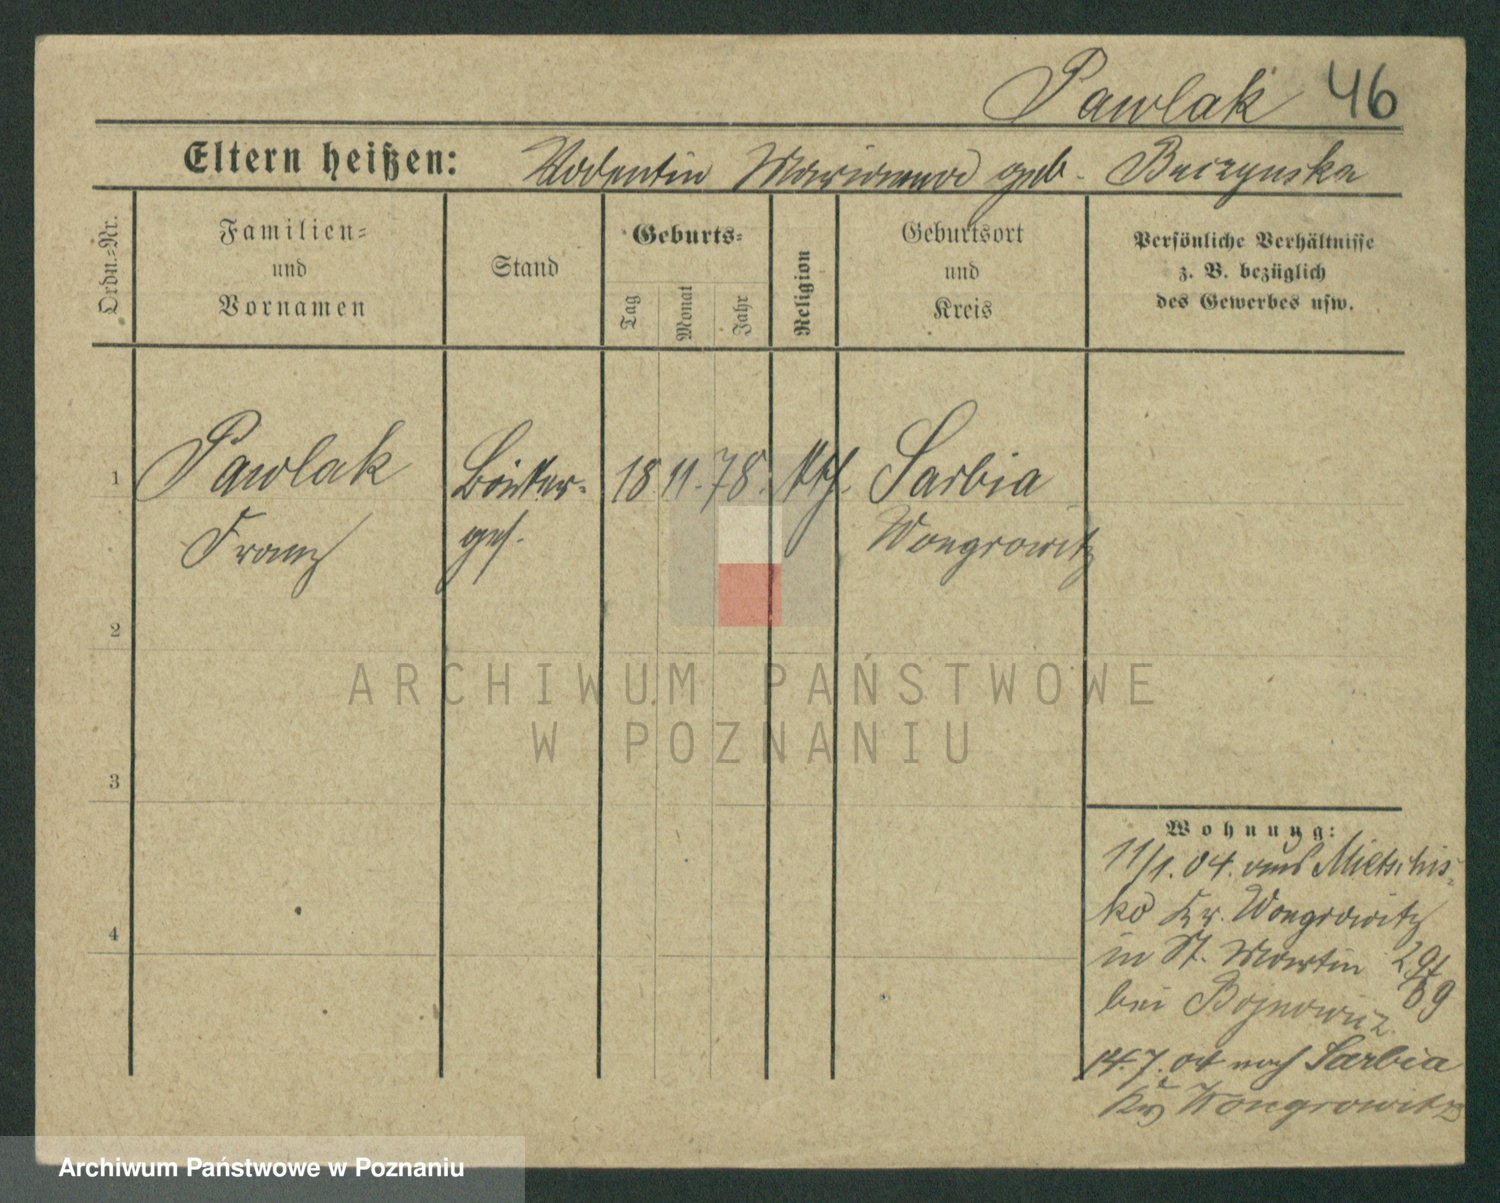 Pawlak 46
Eltern heißen: Valentin Marianna geb. Buczynska
Ordn.-Nr.
Familien-
und
Vornamen
Stand
Geburts-
Tag
Monat
Jahr
Religion
Geburtsort
und
Kreis
Persönliche Verhältnisse
z. B. bezüglich
des Gewerbes usw.
1 Pawlak 18. 11. 78. kth. Sarbia
Franz ges. Wongrowitz
2
3
4
Wohnung:
11/1. 04. aus Mietschis-
ko Kr. Wongrowitz
in St. Martin
bei
14. 7. 04 nach Sarbia
Kr. Wongrowitz
ARCHIWUM PAŃSTWOWE
W POZNANIU
Archiwum Państwowe w Poznaniu